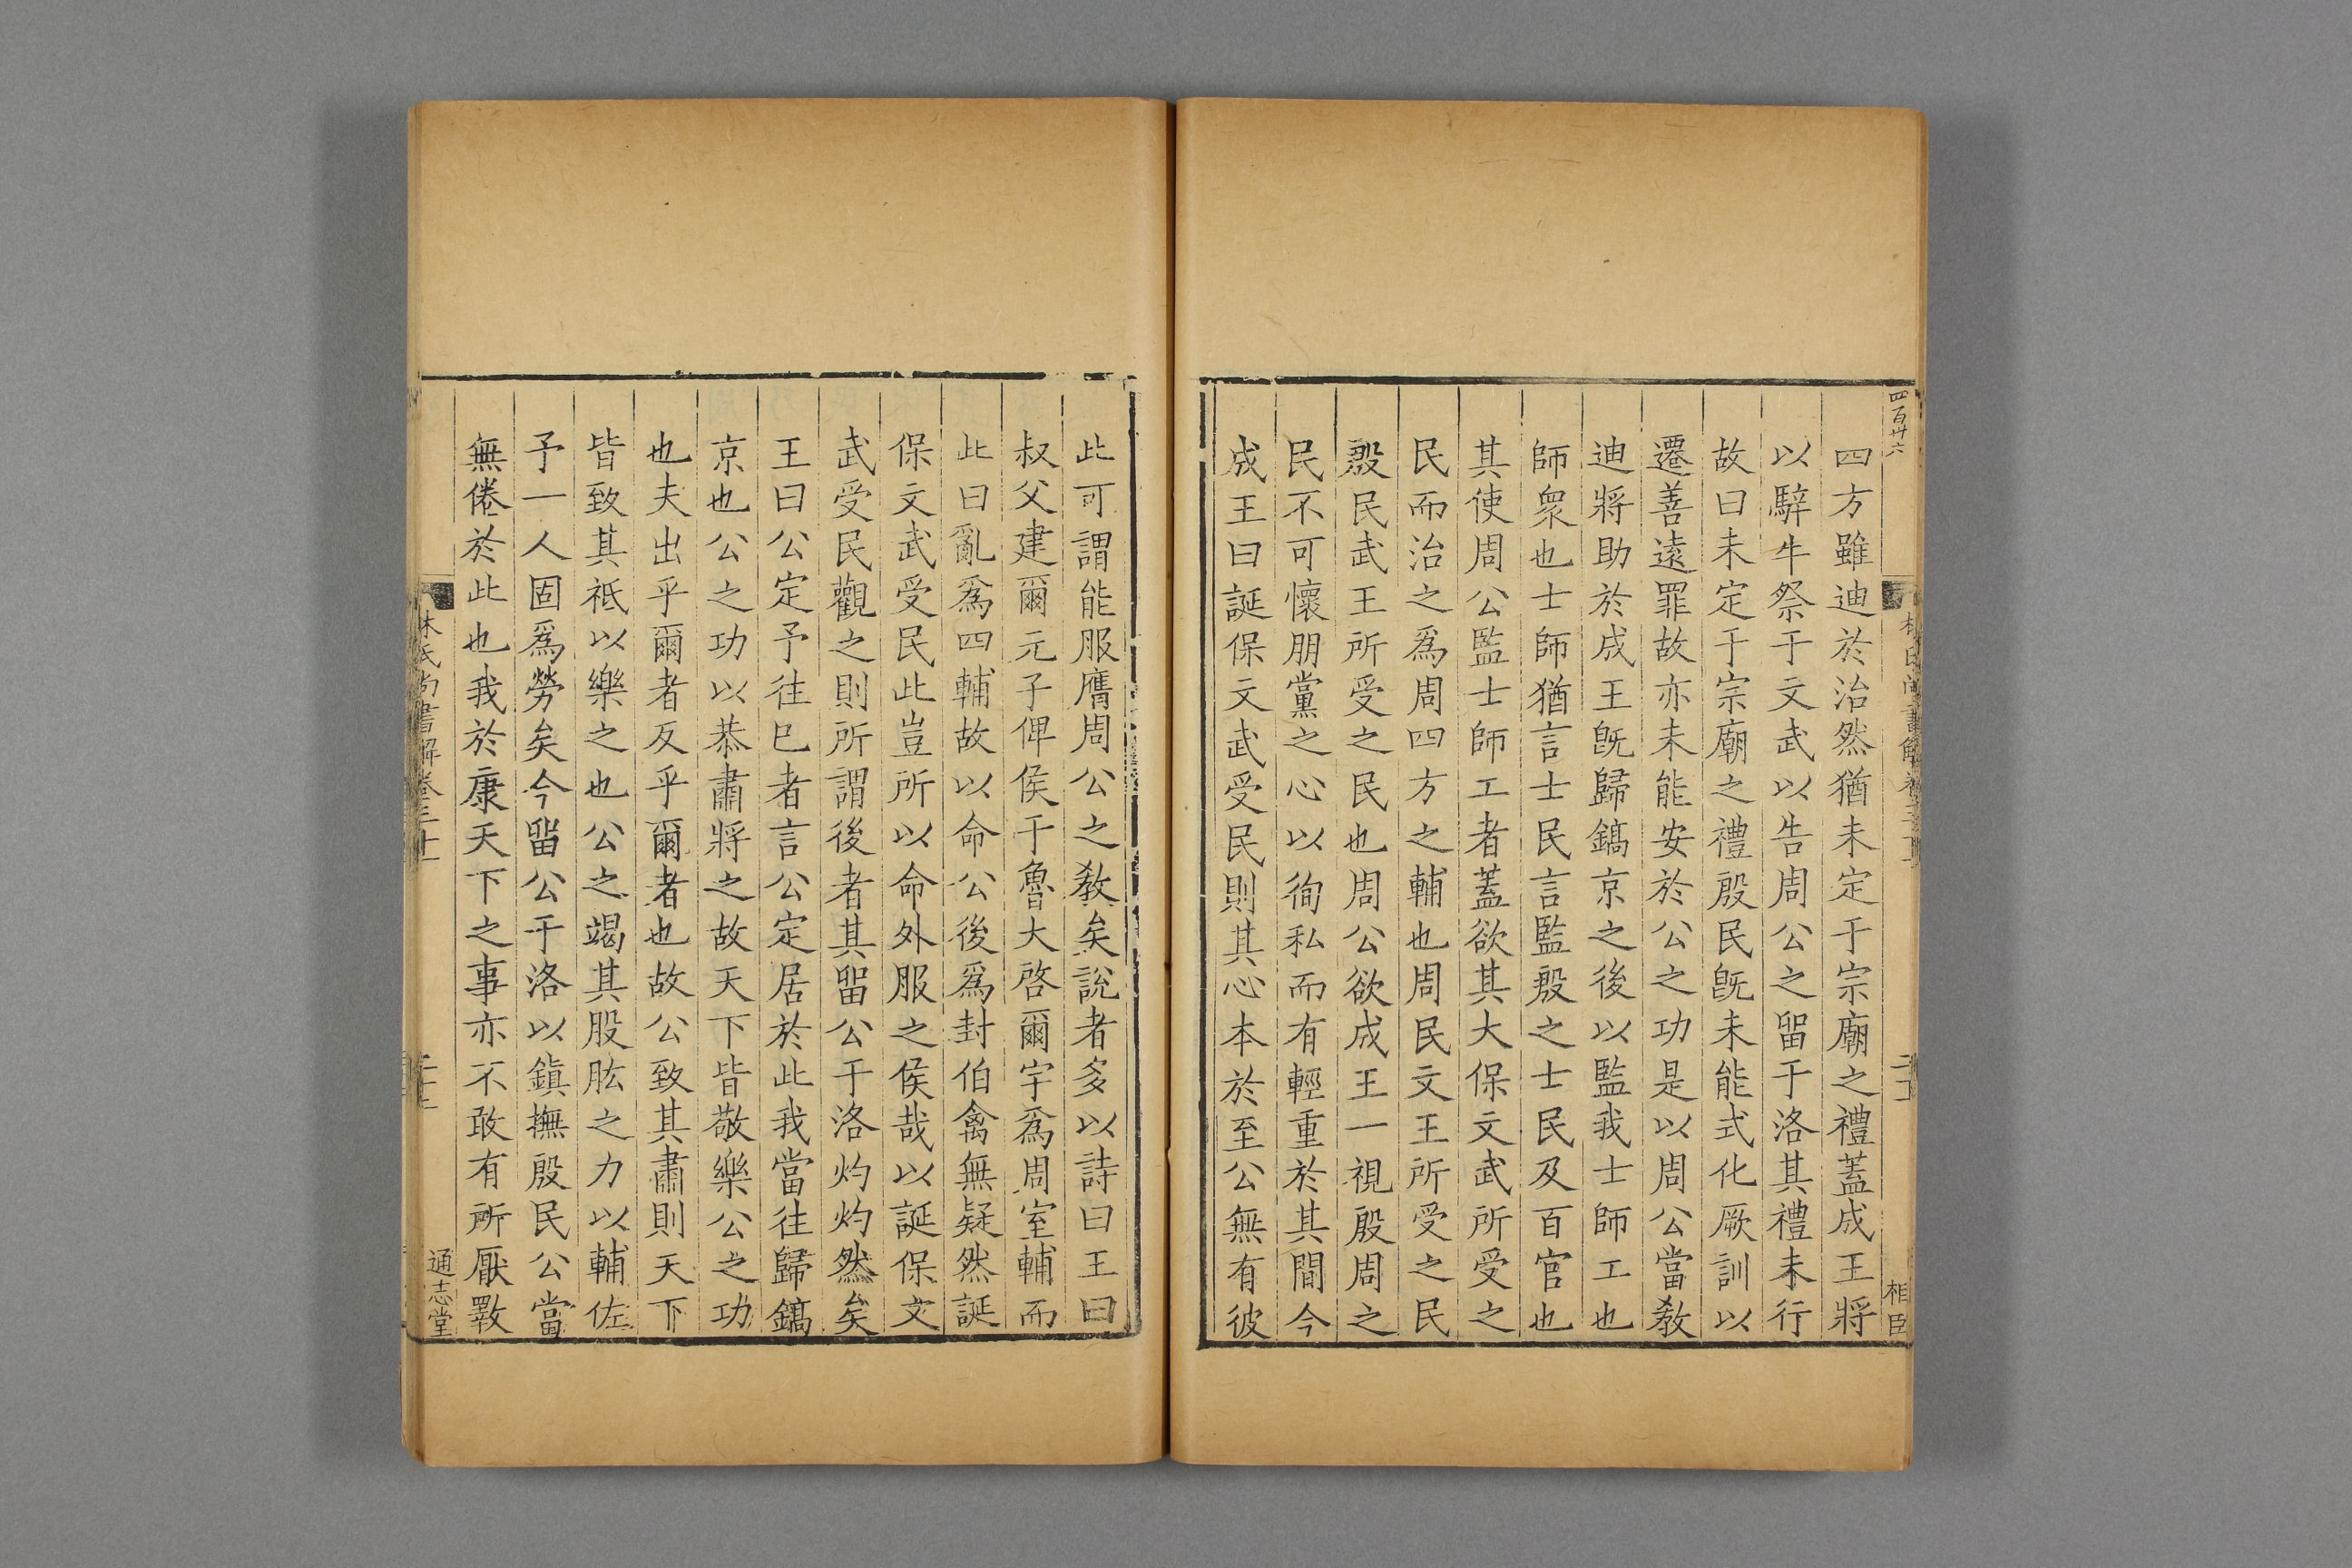 四百卅六
四方雖迪於治然猶未定于宗廟之禮蓋成王將
以騂牛祭于文武以告周公之留于洛其禮未行
故曰未定于宗廟之禮殷民旣未能式化厥訓以
遷善遠罪故亦未能安於公之功是以周公當敎
迪將助於成王旣歸鎬京之後以監我士師工也
師衆也士師猶言士民言監殷之士民及百官也
其使周公監士師工者蓋欲其大保文武所受之
民而治之爲周四方之輔也周民文王所受之民
殷民武王所受之民也周公欲成王一視殷周之
民不可懷朋黨之心以徇私而有輕重於其間今
成王曰誕保文武受民則其心本於至公無有彼
相臣
此可謂能服膺周公之敎矣說者多以詩曰王曰
叔父建爾元子俾侯于魯大啓爾宇爲周室輔而
此曰亂爲四輔故以命公後爲封伯禽無疑然誕
保文武受民此豈所以命外服之侯哉以誕保文
武受民觀之則所謂後者其留公于洛灼灼然矣
王曰公定予往巳者言公定居於此我當往歸鎬
京也公之功以恭肅將之故天下皆敬樂公之功
也夫出乎爾者反乎爾者也故公致其肅則天下
皆致其祗以樂之也公之竭其股肱之力以輔佐
予一人固爲勞矣今留公于洛以鎮撫殷民公當
無倦於此也我於康天下之事亦不敢有所厭斁
林氏尚書解卷三十一
通志堂